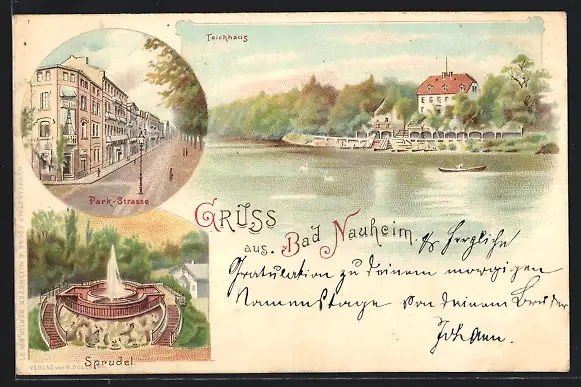 Teichhaus
Park-Strasse
GRUSS
aus. Bad Nauheim.
Herzliche
Gratulation zu deinem morgigen
Namenstage von deinem Bruder
Johann.
Sprudel.
VERLAG von